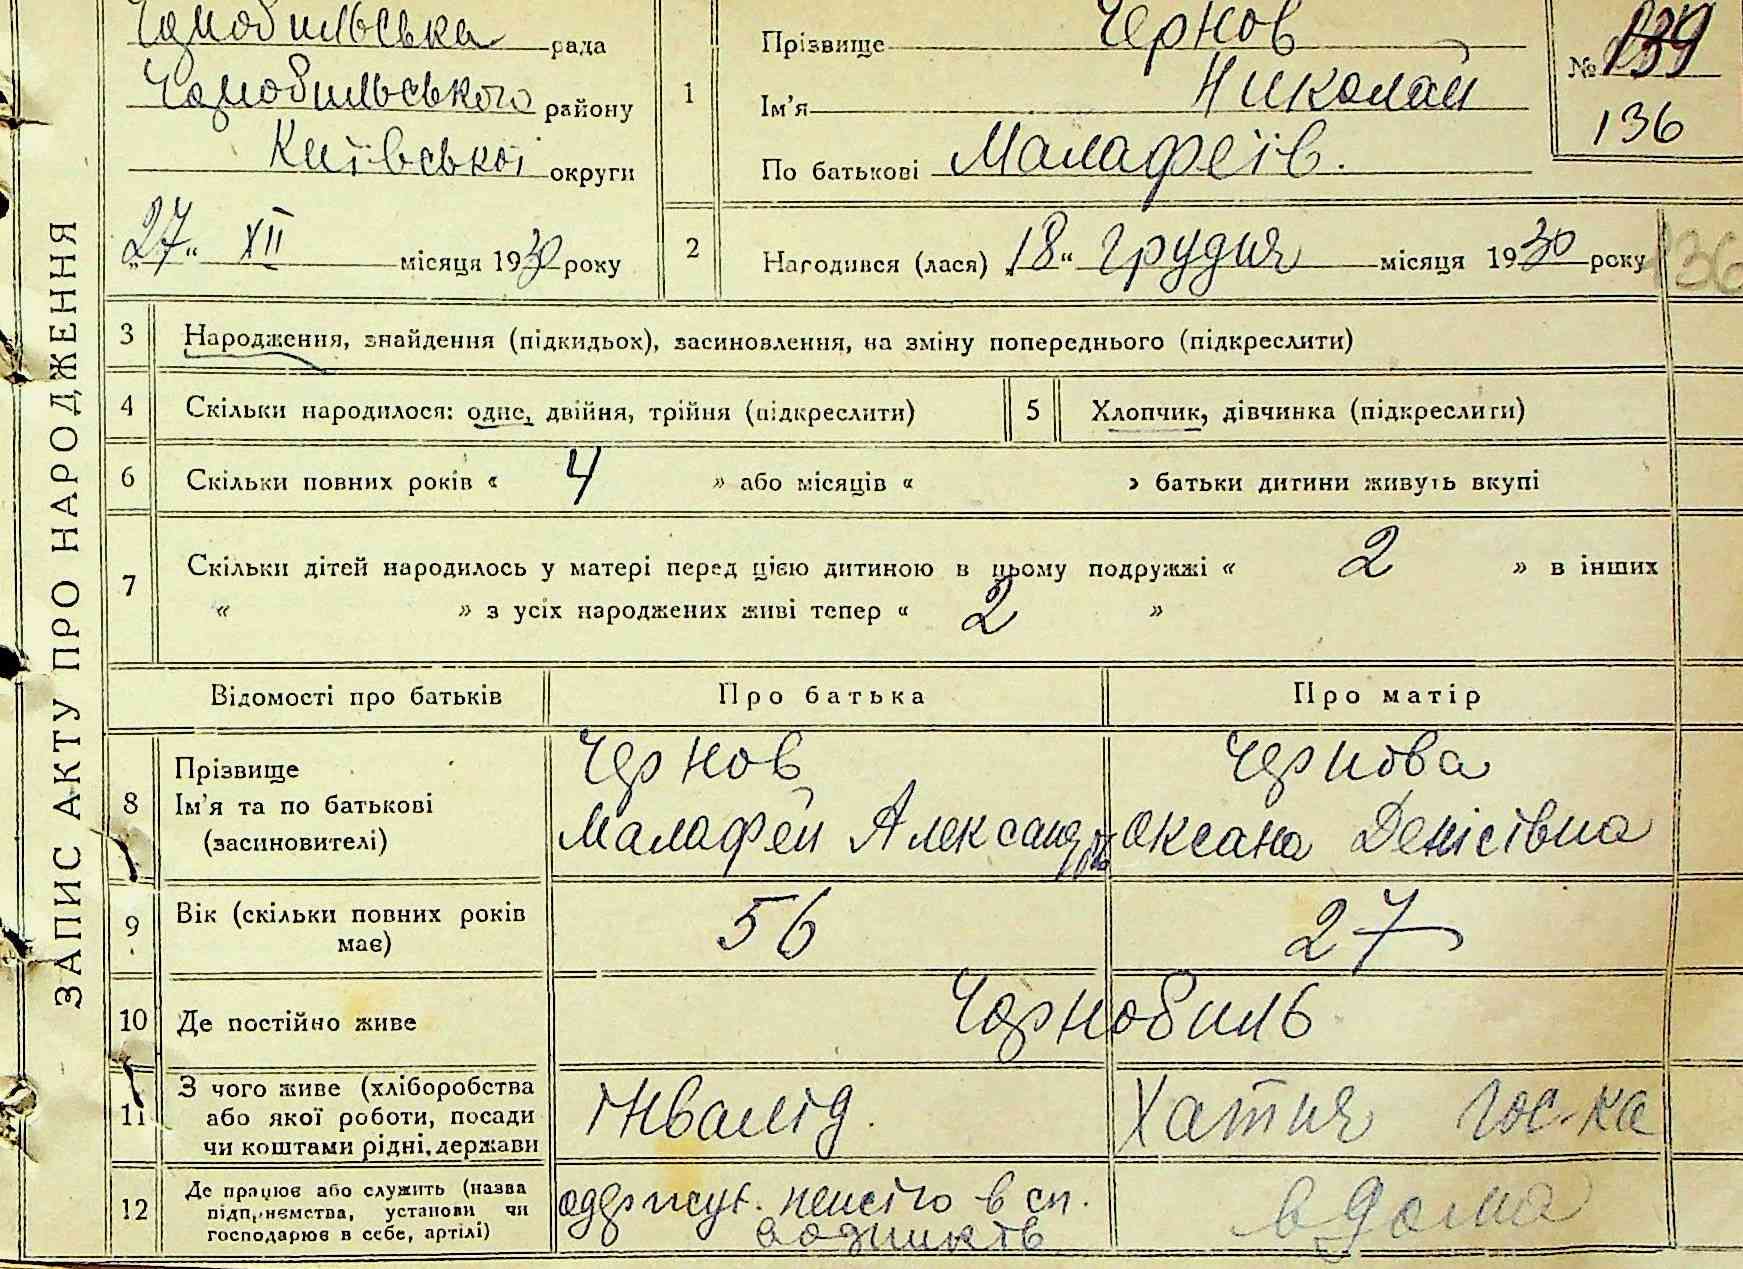 ЗАПИС АКТУ ПРО НАРОДЖЕННЯ
Чорнобильська рада
Чорнобильського району
Київської округи
„27“ XII місяця 1930 року
1 Прізвище Чернов
Ім'я Николай
По батькові Малафеїв.
№ 139
136
2 Народився (лася) „18“ грудня місяця 1930 року
136
3 Народження, знайдення (підкидьох), засиновлення, на зміну попереднього (підкреслити)
4 Скільки народилося: одне, двійня, трійня (підкреслити) 5 Хлопчик, дівчинка (підкреслити)
6 Скільки повних років « 4 » або місяців « » батьки дитини живуть вкупі
7 Скільки дітей народилось у матері перед цією дитиною в цьому подружжі « 2 » в інших
« » з усіх народжених живі тепер « 2 »
Відомості про батьків Про батька Про матір
8 Прізвище
Ім'я та по батькові
(засиновителі)
Чернов
Малафей Александров
Чернова
ОксанаДенісівна
9 Вік (скільки повних років
має)
56 27
10 Де постійно живе Чорнобиль
11 З чого живе (хліборобства
або якої роботи, посади
чи коштами рідні, держави
інвалід. Хатня гос-ка
12 Де працює або служить (назва
підприємства, установи чи
господарює в себе, артілі)
одержує. пенсію в сп.
в дома